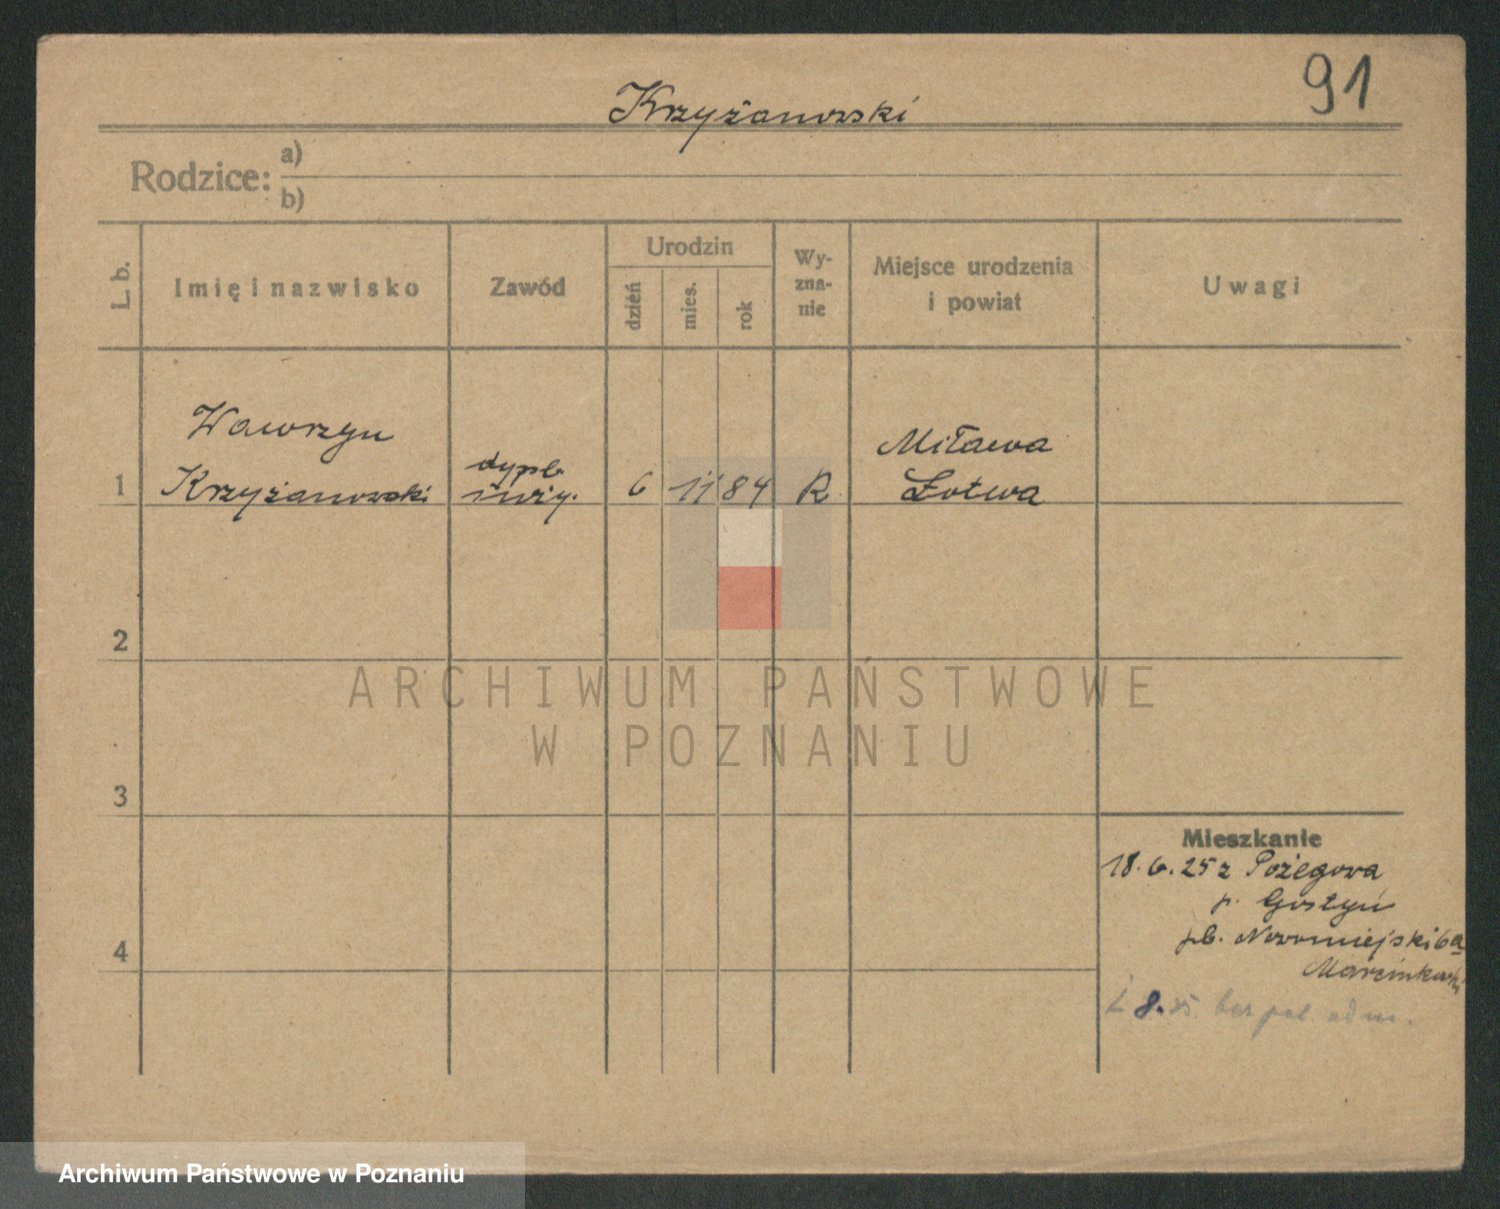 91
Krzyżanowski
Rodzice: a)
b)
L. b.
Imię i nazwisko
Zawód
Urodzin
dzień
mies.
rok
Wy-
zna-
nie
Miejsce urodzenia
i powiat
Uwagi
Wawrzyn
Krzyżanowski
dypl.
inży.
1
6
11
84
R
Miława
Łotwa
2
3
4
Mieszkanie
18.6.25 z Pożegowa
p. Gostyń
pb. Nowomiejski 6a
8.
adm.
ARCHIWUM PAŃSTWOWE
W POZNANIU
Archiwum Państwowe w Poznaniu